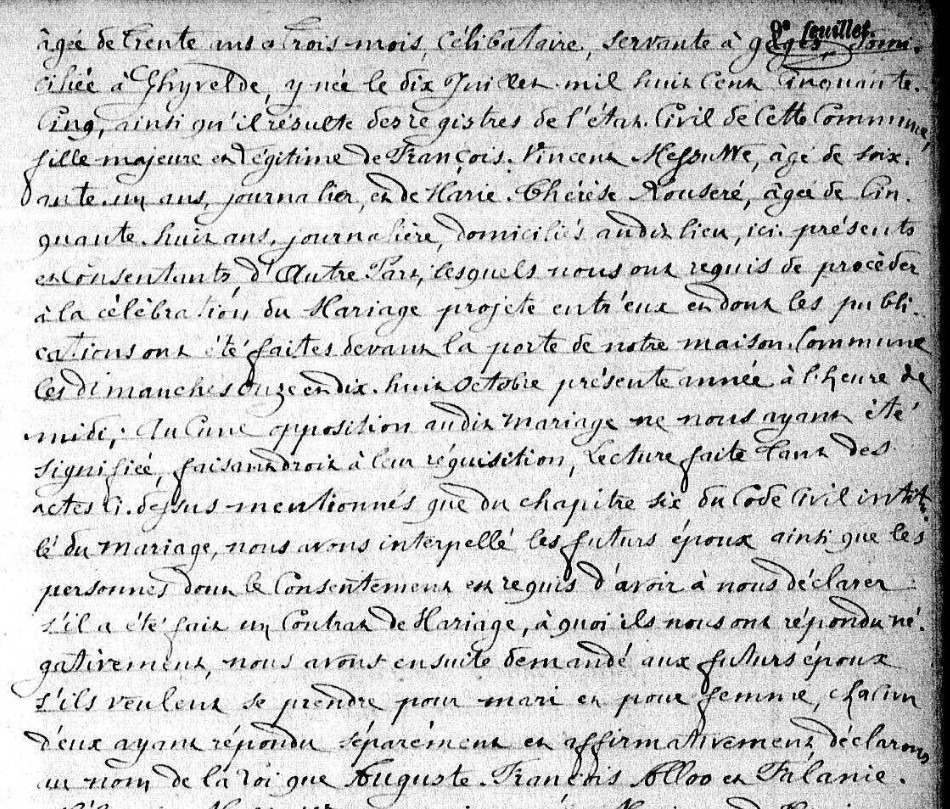 9e feuillet.
âgée de trente ans et trois mois, Célibataire, servante à gages domi-
ciliée à Ghyvelde, y née le dix Juillet mil huit cent Cinquante-
Cinq, ainsi qu'il résulte des registres de l'état Civil de cette Commune,
fille majeure et légitime de François Vincent Messuwe, âgé de soix-
ante-un ans, journalier, et de Marie Thérèse Rouseré, âgée de Cin-
quante-huit ans, journalière, domiciliés audit lieu, ici présents
et Consentants, d'Autre Part; lesquels nous ont requis de procéder
à la célébration du Mariage projeté entr'eux et dont les publi-
cations ont été faites devant la porte de notre maison Commune
les dimanches onze et dix-huit octobre présente année à l'heure de
midi; Aucune opposition audit mariage ne nous ayant été
signifiée, faisant droit à leur réquisition, Lecture faite tant des
actes Ci-dessus mentionnés que du chapitre six du Code Civil intitu-
lé du mariage, nous avons interpellé les futurs époux ainsi que les
personnes dont le Consentement est requis d'avoir à nous déclarer
s'il a été fait un Contrat de Mariage, à quoi ils nous ont répondu né-
gativement, nous avons ensuite demandé aux futurs époux
s'ils veulent se prendre pour mari et pour femme, chacun
d'eux ayant répondu séparément et affirmativement, déclarons
au nom de la loi que Auguste François Alloo et Falanie